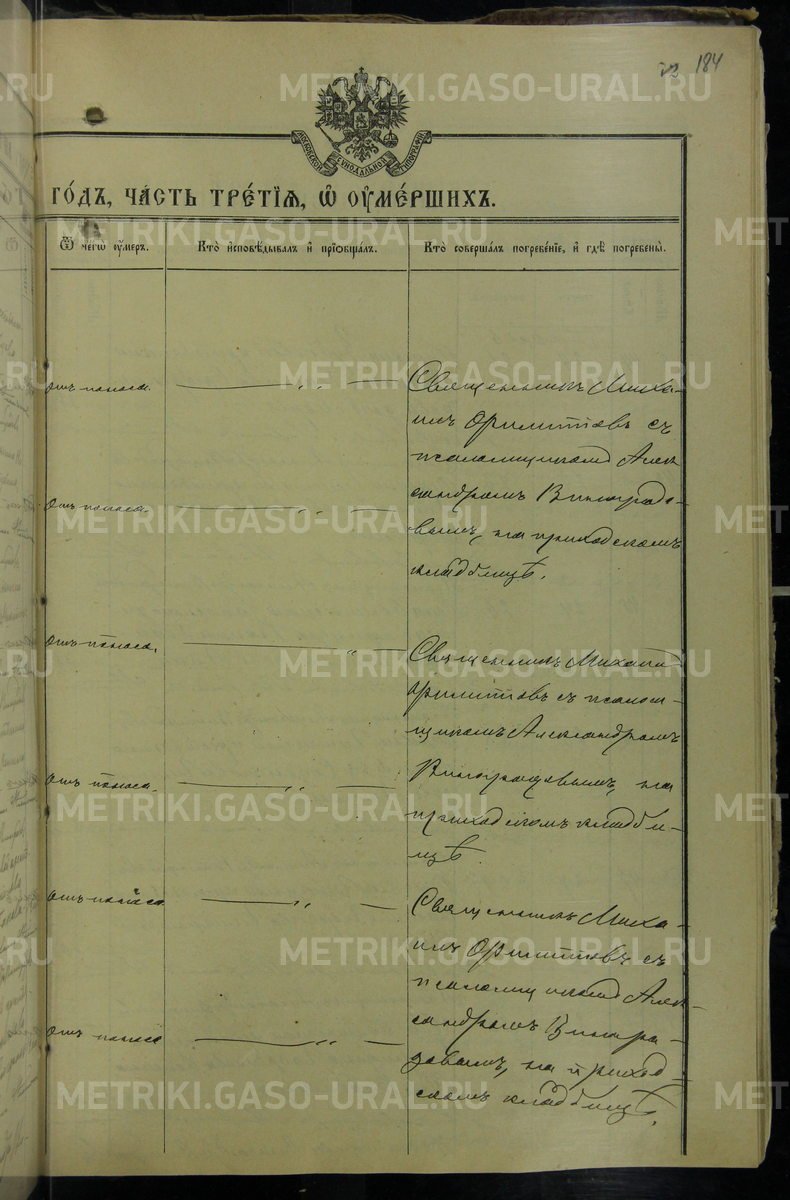 184
МОСКОВСКОЙ СѴНОДАЛЬНОЙ ТИПОГРАФІИ
ГО́ДЪ, ЧА́СТЬ ТРЕ́ТІѦ, Ѡ҆ ОУ҆МЕ́РШИХЪ.
Ѿ чегѡ̀ оу҆́меръ.
Кто̀ и҆сповѣ́дывалъ и҆ прїобща́лъ.
Кто̀ соверша́лъ погребе́нїе, и҆ гдѣ̀ погребены̀.
отъ поноса.
Священникъ Миха-
илъ Филиттовъ съ
псаломщикомъ Алек
сандромъ Виноградо-
вымъ, на приходскомъ
кладбищѣ.
отъ поноса.
отъ поноса.
Священникъ Михаилъ
Филиттовъ съ псалом-
щикомъ Александромъ
Виноградовымъ, на
приходскомъ кладби-
щѣ.
отъ поноса.
отъ поноса
Священникъ Миха-
илъ Филиттовъ съ
псаломщикомъ Алек-
сандромъ Виногра-
довымъ, на приход-
скомъ кладбищѣ.
отъ поноса
METRIKI.GASO-URAL.RU